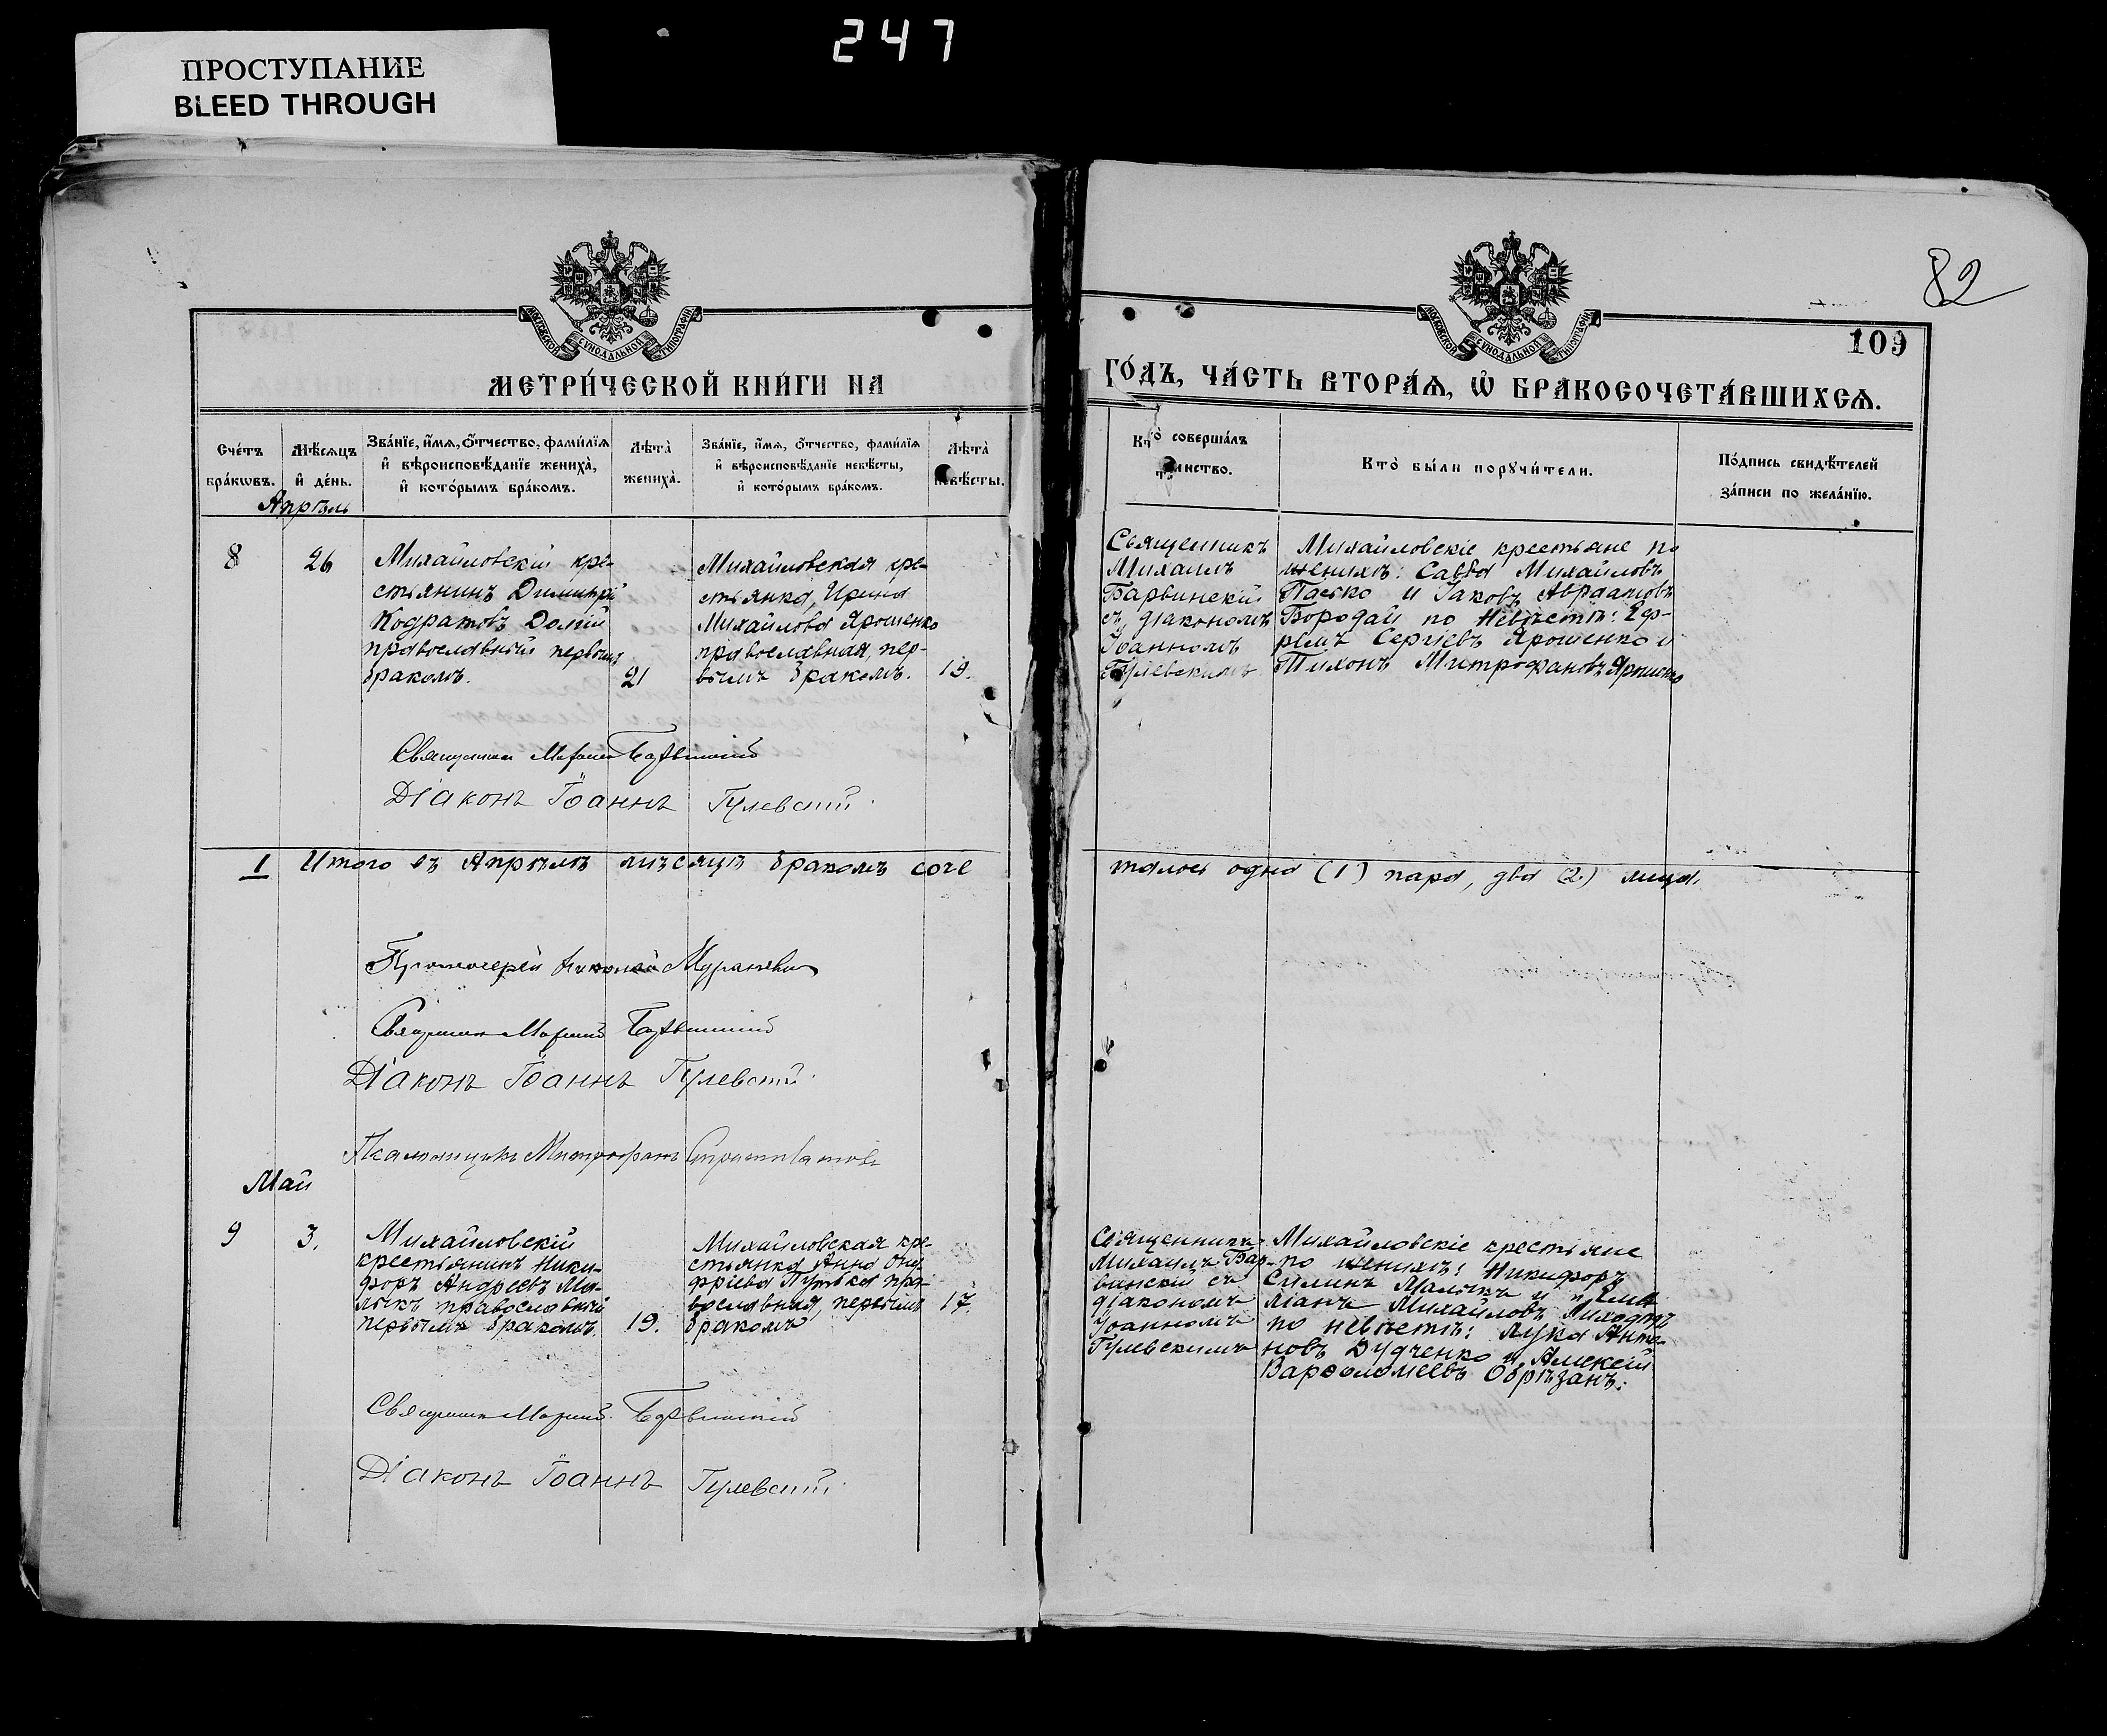 247
ПРОСТУПАНИЕ
BLEED THROUGH
82
109
МОСКОВСКОЙ СѴНОДАЛЬНОЙ ТИПОГРАФІИ
МОСКОВСКОЙ СѴНОДАЛЬНОЙ ТИПОГРАФІИ
МЕТРИ́ЧЕСКОЙ КНИ́ГИ НА
ГО́ДЪ, ЧА́СТЬ ВТОРА́Я, Ѿ БРАКОСОЧЕТА́ВШИХСЯ.
Сче́тъ
бра́кѡвъ.
Мѣ́сяцъ
и҆ де́нь.
Зва́нїе, и҆́мя, ѻ҆́тчество, фами́лїя
и҆ вѣроисповѣ́данїе жениха̀,
и҆ кото́рымъ бра́комъ.
Лѣ́та
жениха̀.
Зва́нїе, и҆́мя, ѻ҆́тчество, фами́лїя
и҆ вѣроисповѣ́данїе невѣ́сты,
и҆ кото́рымъ бра́комъ.
Лѣ́та
невѣ́сты.
Кто̀ соверша́лъ
таинство.
Кто̀ бы́ли порꙋчи́тели.
По́дпись свидѣ́телей
за́писи по жела́нїю.
Апрѣль
8
26
Михайловскій кре-
стьянинъ Димитрій
Кодратовъ Долгій
православный первымъ
бракомъ.
21
Михайловская кре-
стьянка, Ирина
Михайлова Ярошенко
православная, пер-
вымъ бракомъ.
19.
Священникъ
Михаилъ
Барвинскій
съ діакономъ
Іоанномъ
Гулевскимъ
Михайловскіе крестьяне по
женихѣ: Савва Михайловъ
Пасько и Іаковъ Авраамовъ
Бородай по невѣстѣ: Еф-
рѣмъ Сергіевъ Ярошенко и
Тихонъ Митрофановъ Ярошенко
Священникъ Михаилъ Барвинскій
Діаконъ Іоаннъ Гулевскій.
1 Итого въ Апрѣлѣ мѣсяцѣ бракомъ соче
талось одна (1) пара, два (2) лица.
Протоіерей Николай
Священникъ Михаилъ Барвинскій
Діаконъ Іоаннъ Гулевскій.
Псаломщикъ Митрофанъ
Май
9
3.
Михайловскій
крестьянинъ Ники-
форъ Андреевъ Ма-
лыкъ православный
первымъ бракомъ.
19.
Михайловская кре-
стьянка Анна Ону-
фріева Пугька пра-
вославная, первымъ
бракомъ
17.
Священникъ
Михаилъ Бар-
винскій съ
діакономъ
Іоанномъ
Гулевскимъ
Михайловскіе крестьяне
по женихѣ: Никифоръ
Силинъ Малыкъ и Еми
ліанъ Михайловъ Лиходѣдъ
по невѣстѣ: Лука Анто-
новъ Дудченко и Алексій
Варѳоломеевъ Обрѣзанъ.
Священникъ Михаилъ Барвинскій
Діаконъ Іоаннъ Гулевскій.